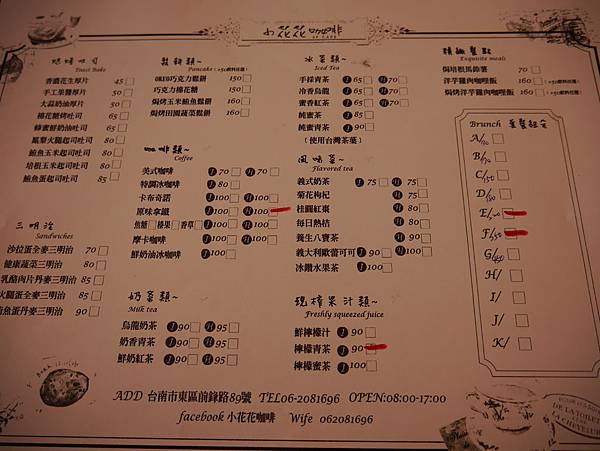 小花花咖啡
烘烤吐司
Toast Bake
香濃花生厚片 45
手工果醬厚片 50
大蒜奶油厚片 50
棉花糖烤吐司 50
蜂蜜鮮奶油吐司
鳳梨火腿起司吐司
鮪魚玉米起司吐司
培根玉米起司吐司
鮪魚蛋起司吐司
三明治
Sandwiches
沙拉蛋全麥三明治 70
健康蔬菜三明治 80
乳酪肉片丹麥三明治 85
火腿蛋全麥三明治 85
鮪魚蛋丹麥三明治 90
鬆餅類~
Pancake
OREO巧克力鬆餅 150
巧克力棉花糖 150
焗烤玉米鮪魚鬆餅 160
焗烤田園蔬菜鬆餅 160
咖啡類~
Coffee
美式咖啡 I 70 H 70
特調冰咖啡 I 80
卡布奇諾 I 100 H 100
原味拿鐵 I 100 H 100
焦糖 榛果 香草 I 100 H 100
摩卡咖啡 I 100 H 100
鮮奶油冰咖啡 I 100
奶茶類~
Milk tea
烏龍奶茶 I 90 H 95
奶香青茶 I 90 H 95
鮮奶紅茶 I 90 H 95
冰茶類~
Iced Tea
手採青茶 I 65 H 70
冷香烏龍 I 65 H 70
蜜香紅茶 I 65 H 70
純蜜茶 I 85
純蜜青茶 I 90
(使用台灣茶葉)
風味茶~
Flavored tea
義式奶茶 I 75 H 75
菊花枸杞 H 75
桂圓紅棗 H 100
每日熱桔 H 80
養生八寶茶 H 90
義大利歐蕾可可 I 90 H 90
冰鑽水果茶 I 100
現榨果汁類~
Freshly squeezed juice
鮮檸檬汁 I 90
檸檬青茶 I 90
檸檬蜜茶 I 100
精緻餐點
Exquisite meals
焗培根馬鈴薯 70
洋芋雞肉咖哩飯 160
焗烤洋芋雞肉咖哩飯 160
Brunch 早餐組合
A/
B/
C/
D/
E/
F/
G/
H/
I/
J/
K/
ADD 台南市東區前鋒路89號 TEL06-2081696 OPEN:08:00-17:00
facebook 小花花咖啡 Wife 062081696
DE LA TOILETTE
LA CHEVELURE